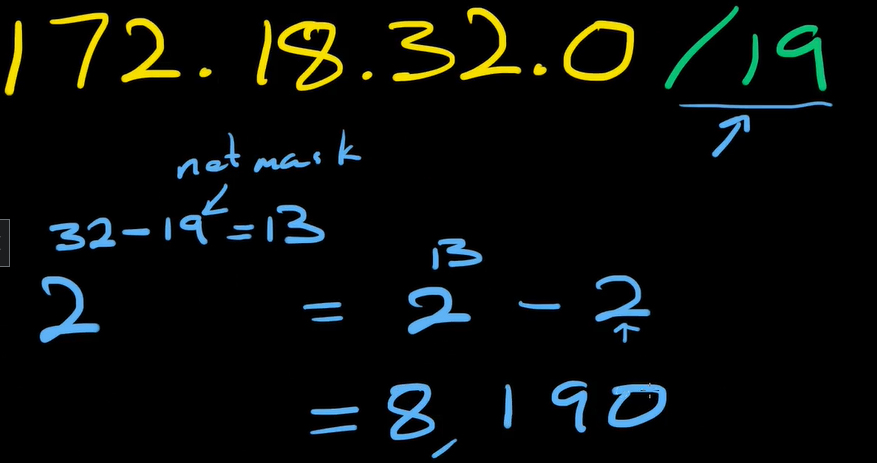 172.18.32.0/19
netmask
32-19=13
2 = 2¹³ - 2
= 8,190